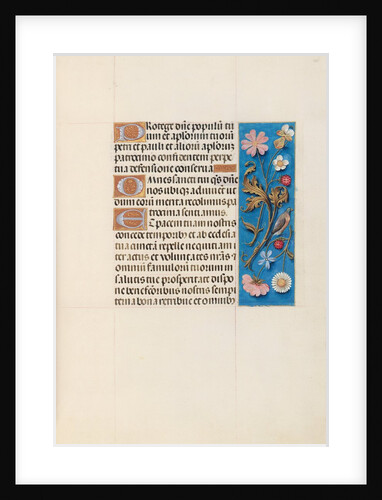 Protege dñe populũ tu
um et aplorum tuorũ
petri et pauli et aliorũ aplorũ
patrocinio confidentem perpe
tua defensione conserva
Omnes sancti tui qs dñe
nos ubiqz adiuvent ut
dum eorũ merita recolimus pa
trocinia sentiamus
Et pacem tuam nostris
concede temporibz et ab ecclesia
tua cunctã repelle nequitiam i
ter actus et volũtates nr̃as &
omniũ famulorũ tuorum in
salutis tue prosperitate dispo
ne benefactoribus nostris sempi
terna bona retribue et omnibz